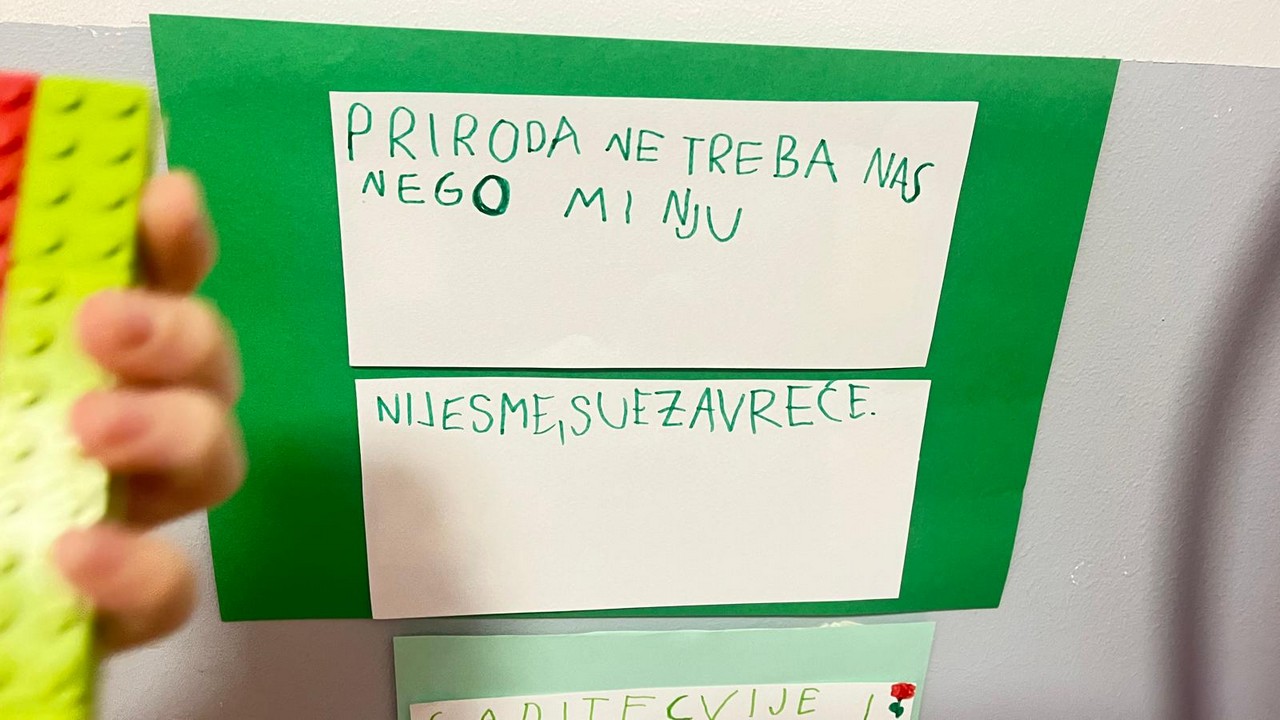 PRIRODA NE TREBA NAS
NEGO MI NJU
NIJESME,SUEZAVREĆE.
SADITECVIJE